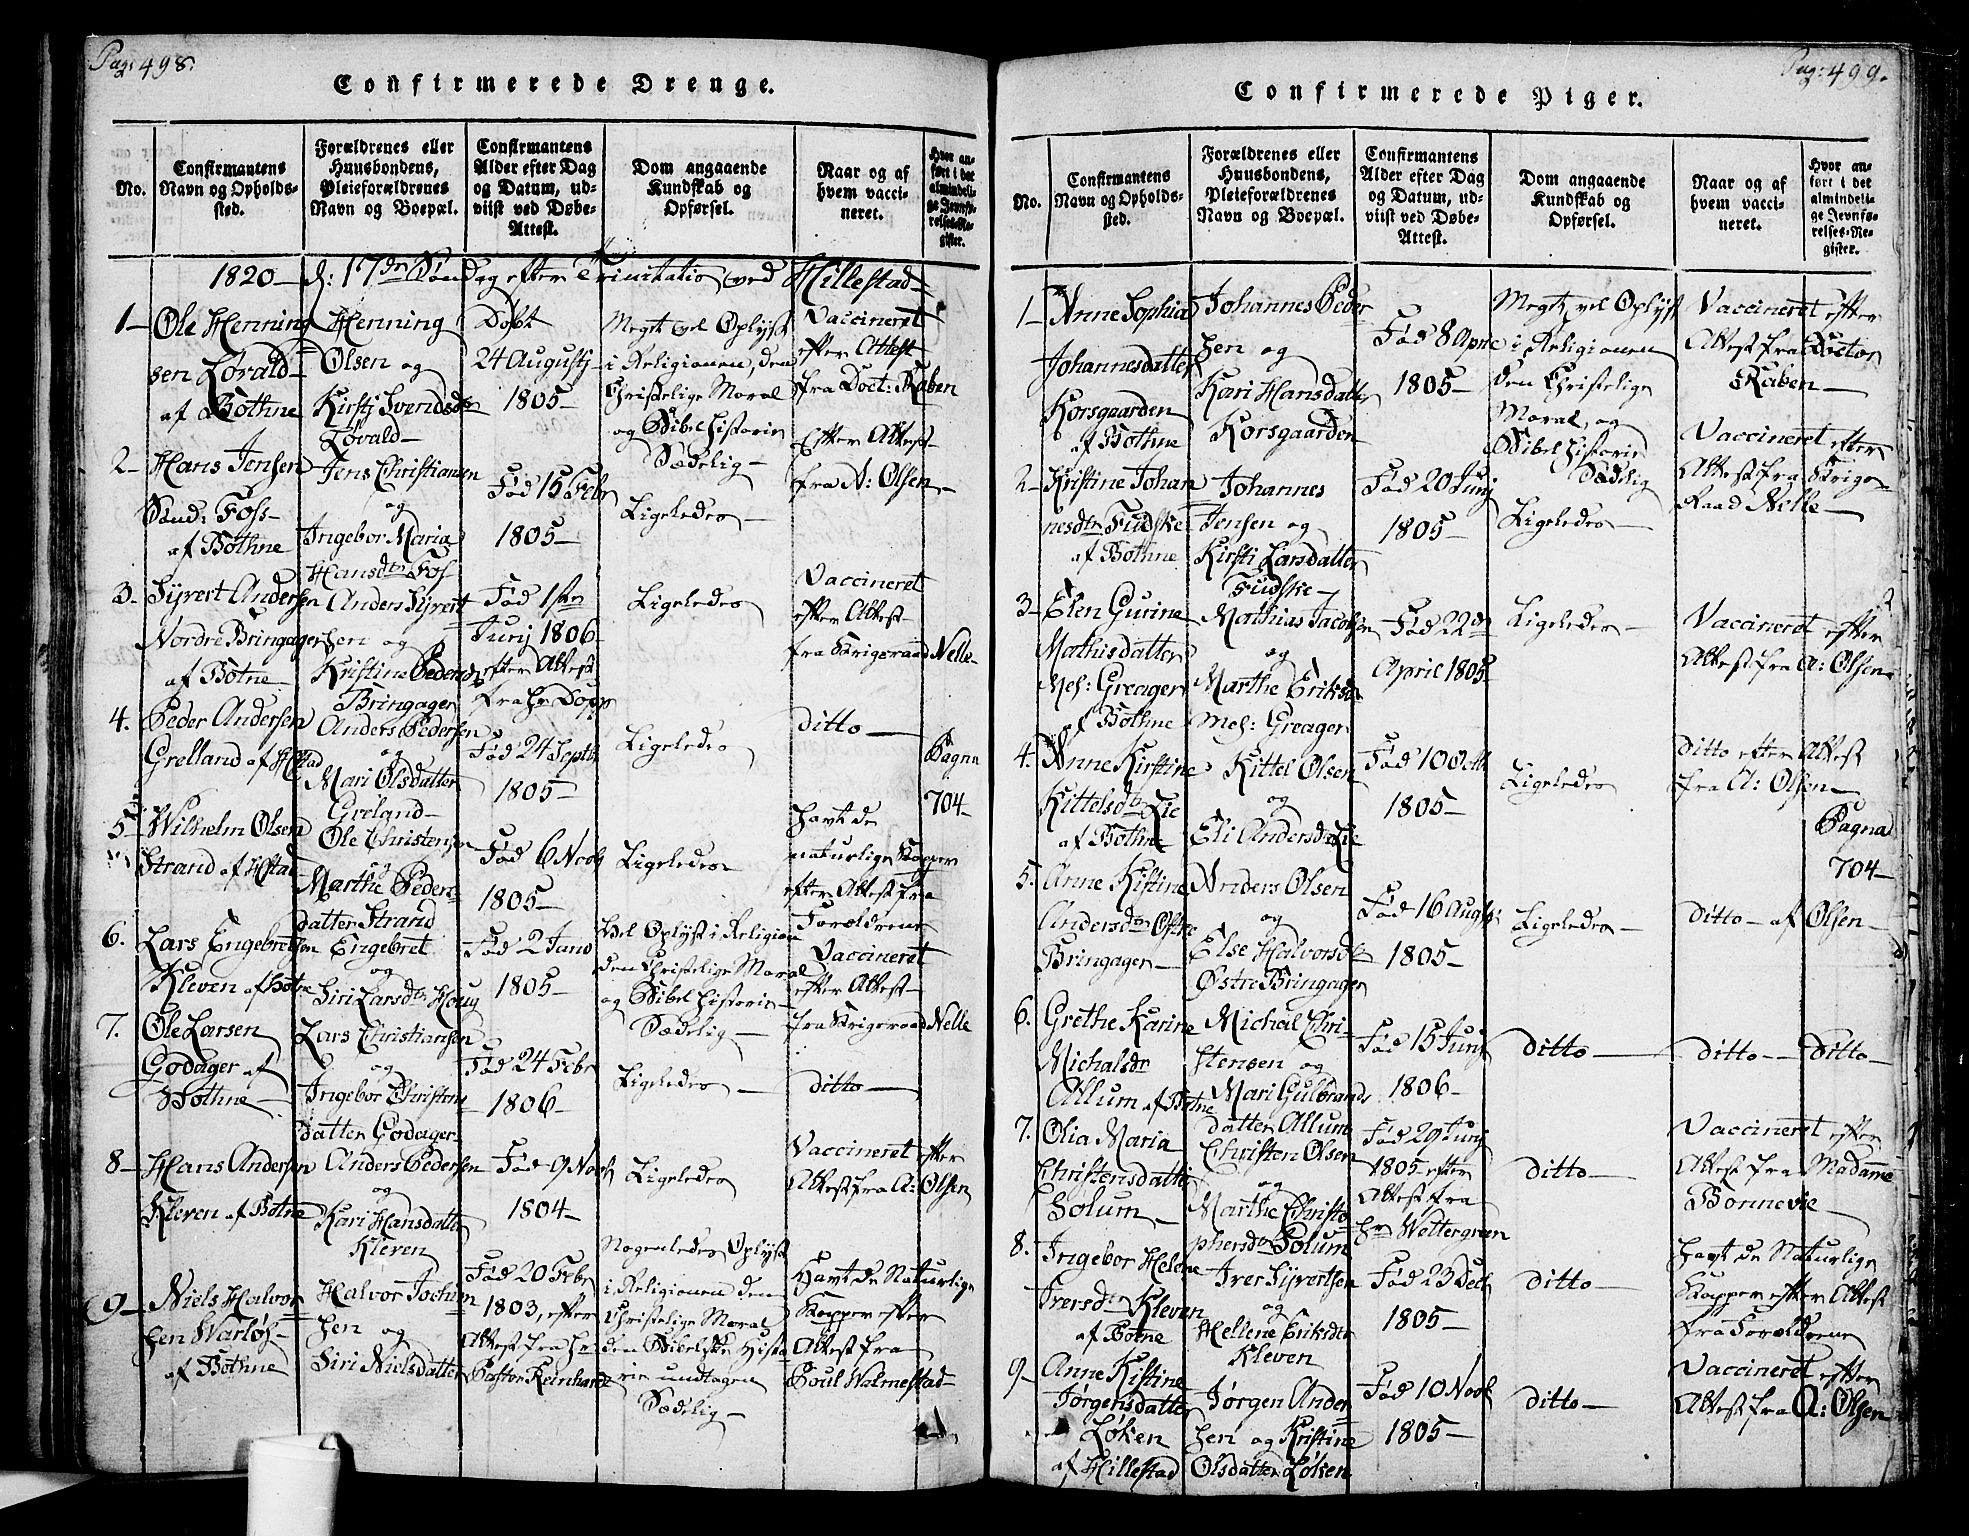 Pag: 498.
Confirmerede Drenge.
No.
Confirmantens
Navn og Opholds-
sted.
Forældrenes eller
Huusbondens,
Pleieforældrenes
Navn og Boepæl.
Confirmantens
Alder efter Dag
og Datum, ud-
viist ved Døbe-
Attest.
Dom angaaende
Kundskab og
Opførsel.
Naar og af
hvem vacci-
neret.
Hvor an-
ført i det
almindeli-
ge Jevnfø-
relses-Re-
gister.
1820 — d: 17de Søndag efter Trinitatis ved Hillestad —
1 —
Ole Henning
sen Lørald
af Bothne
Henning
Olsen og
Kirsti Svendsdr
Døbt
24 Augustj
1805 —
Meget vel Oplyst
i Religionen, den
Christelige Moral
og Bibel historie
Sædelig —
Vaccineret
efter Attest
fra Doct: Raben
2 —
Hans Jensen
Sønd: Foss —
af Bothne
Jens Christiansen
og
Ingebor Maria
Hansdtr Fos
Fød 15 Febr
1805 —
Ligeledes —
Efter Attest
fra A: Olsen —
3.
Syvert Andersen
Nordre Bringager
af Botne —
Anders Syvert
sen og
Kristine Peders
Bringager
Fød 1sten
Junj 1806
efter Attest
fra Hr Dopp
Ligeledes
Vaccineret
efter Attest
fra Krigsraad Nelle —
4.
Peder Andersen
Grelland af Hstad
Anders Pedersen
og
Mari Olsdatter
Greland —
Fød 24 Septb
1805 —
Ligeledes
ditto —
Pagna
704 —
5.
Wilhelm Olsen
Strand af Hstad
Ole Christensen
og
Marthe Peders
datter Strand
Fød 6 Novb
1805 —
Ligeledes —
havt de
naturlige Kopper
efter Attest fra
Forældrene
6.
Lars Engebretsen
Kleven af Botne
Engebret
og
Siri Larsdtr Houg
Fød 2 Juno
1805 —
Vel Oplyst i Religion
den Christelige Moral
og Bibel historie
Sædelig —
Vaccineret
efter Attest
fra Krigsraad Nelle
7.
Ole Larsen
Godager af
Bothne —
Lars Christiansen
og
Ingebor Christens
datter Godager —
Fød 24 Febr
1806 —
Ligeledes —
ditto —
8 —
Hans Andersen
Kleven af Botne
Anders Pedersen
og
Kari Hansdatter
Kleven
Fød 9 Novb
1804 —
Ligeledes
Vaccineret efter
Attest fra A: Olsen
9 —
Niels Halvor
sen Warløs —
af Bothne
Halvor Jochum
sen og
Siri Nielsdatter
Fød 20 Febr
1803, efter
Attest fra Hr
Pastor Reinhardt
Nogenledes Oplyst
i Religionen den
Christelige Moral
den Bibelske Histo
rie undtagen
Sædelig —
Havt de Naturlige
Kopper efter
Attest fra
Poul Walmestad —
Pag: 499.
Confirmerede Piger.
No.
Confirmantens
Navn og Opholds-
sted.
Forældrenes eller
Huusbondens,
Pleieforældrenes
Navn og Boepæl.
Confirmantens
Alder efter Dag
og Datum, ud-
viist ved Døbe-
Attest.
Dom angaaende
Kundskab og
Opførsel.
Naar og af
hvem vacci-
neret.
Hvor an-
ført i det
almindeli-
ge Jevnfø-
relses-Re-
gister.
1 —
Anne Sophia
Johannesdatter
Korsgaarden
af Bothne
Johannes Peder
sen og
Kari Hansdatter
Korsgaarden
Fød 8 April
1805 —
Meget vel Oplyst
i Religionen
den Christelige
Moral, og
Bibel historie
Sædelig
Vaccineret efter
Attest fra Doctor
Raben —
2 —
Kristine Johan
nesdtr Fuske
af Bothne
Johannes
Jensen og
Kirsti Larsdatter
Fudske —
Fød 20 Junj
1805 —
Ligeledes —
Vaccineret efter
Attest fra Krigs —
Raad Nelle —
3 —
Elen Gurine
Mathisdatter
Mel: Greager
af Bothne
Mathias Jacobsen
og
Marthe Eriksd
Mel: Greager
Fød 22de
April 1805
Ligeledes —
Vaccineret efter
Attest fra A: Olsen
4.
Anne Kirstine
Kittelsdtr Lie
af Bothne
Kittel Olsen
og
Eli Andersd Lie
Fød 10 Octb
1805 —
Ligeledes
ditto efter Attest
fra A: Olsen —
Pagna
704 —
5.
Anne Kistine
Andersdtr Østre
Bringager —
Anders Olsen
og
Else Halvorsdtr
Østre Bringager
Fød 16 Augst:
1805 —
Ligeledes —
ditto — af Olsen —
6.
Grethe Karine
Michalsdr
Allum af Botne
Michal Chri-
stensen og
Mari Gulbrands
datter Allum
Fød 15 Junj
1806 —
ditto —
ditto —
ditto —
7.
Olia Maria
Christensdatter
Solum —
Christen Olsen
og
Marthe Christo
phersdtr Solum
Fød 29 Junj
1805 efter
Attest fra
Hr Wettergreen
ditto —
Vaccineret efter
Attest fra Madamme
Bonnevie —
8.
Ingebor Helene
Iversdtr Kleven
af Botne
Iver Syvertsen
og
Hellene Eriksdtr
Kleven
Fød 23 Decb
1805 —
ditto —
havt de Naturlige
Kopper efter Attest
fra Forældrene
9 —
Anne Kistine
Jørgensdatter
Løken
af Hillestad
Jørgen Ander
sen og Kristine
Olsdatter Løken
Fød 10 Novb
1805 —
ditto —
Vaccineret efter
Attest fra A: Olsen